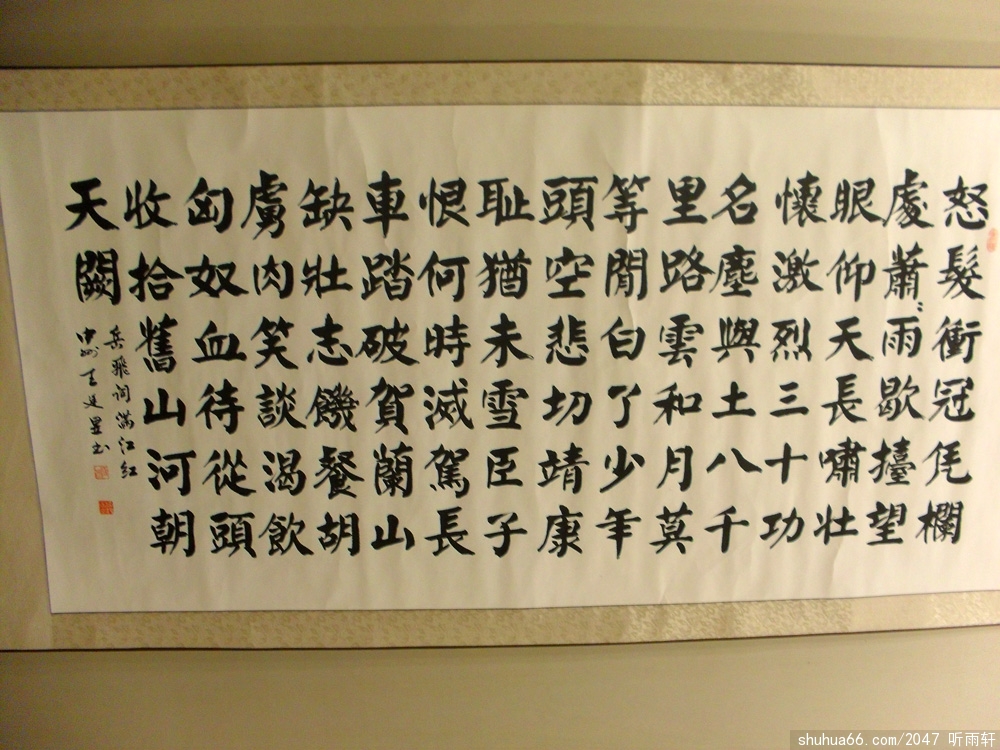 怒髮衝冠凭欄
處蕭〻雨歇擡望
眼仰天長嘯壯
懷激烈三十功
名塵與土八千
里路雲和月莫
等閒白了少年
頭空悲切靖康
耻猶未雪臣子
恨何時滅駕長
車踏破賀蘭山
缺壯志饑餐胡
虜肉笑談渴飲
匈奴血待從頭
收拾舊山河朝
天闕
岳飛詞滿江紅
中州王廷书
shuhua66.com/2047 听雨轩